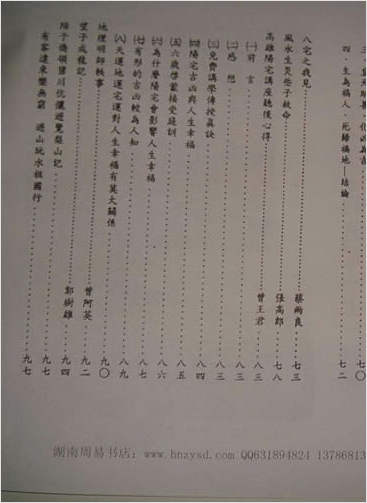 四、生為福人，死歸福地—結論……七二
八宅之我見……良 七三
風水生災些子救命……張高郎 七八
高雄陽宅講座聽後心得……曾王君 八三
㈠前言……八三
㈡感想……八三
㈢免費講學傳授真訣……八四
㈣陽宅吉凶與人生幸福……八五
㈤六歲啓蒙接受庭訓……八六
㈥為什麼陽宅會影響人生幸福……八七
㈦有形的吉凶較為人知……八九
㈧天運地運宅運對人生幸福有莫大關係……九〇
地理明師軼事……曾阿英 九二
望子成龍記……郭樹雄 九四
陪子僑領鹽川伉儷遊覽梨山記……九七
有客遠來樂無窮 遊山玩水祖國行……九七
湖南周易书店：www.hnzysd.com QQ631894824 13786813